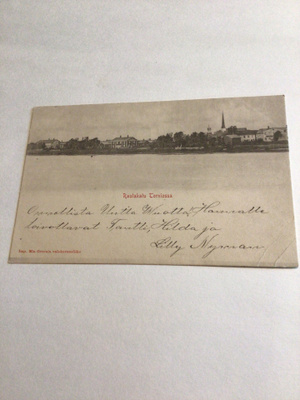 Rantakatu Torniossa
Onnellista Uutta Vuotta, Hannalle
toivottavat Fantti, Hilda ja
Lilly Nyman